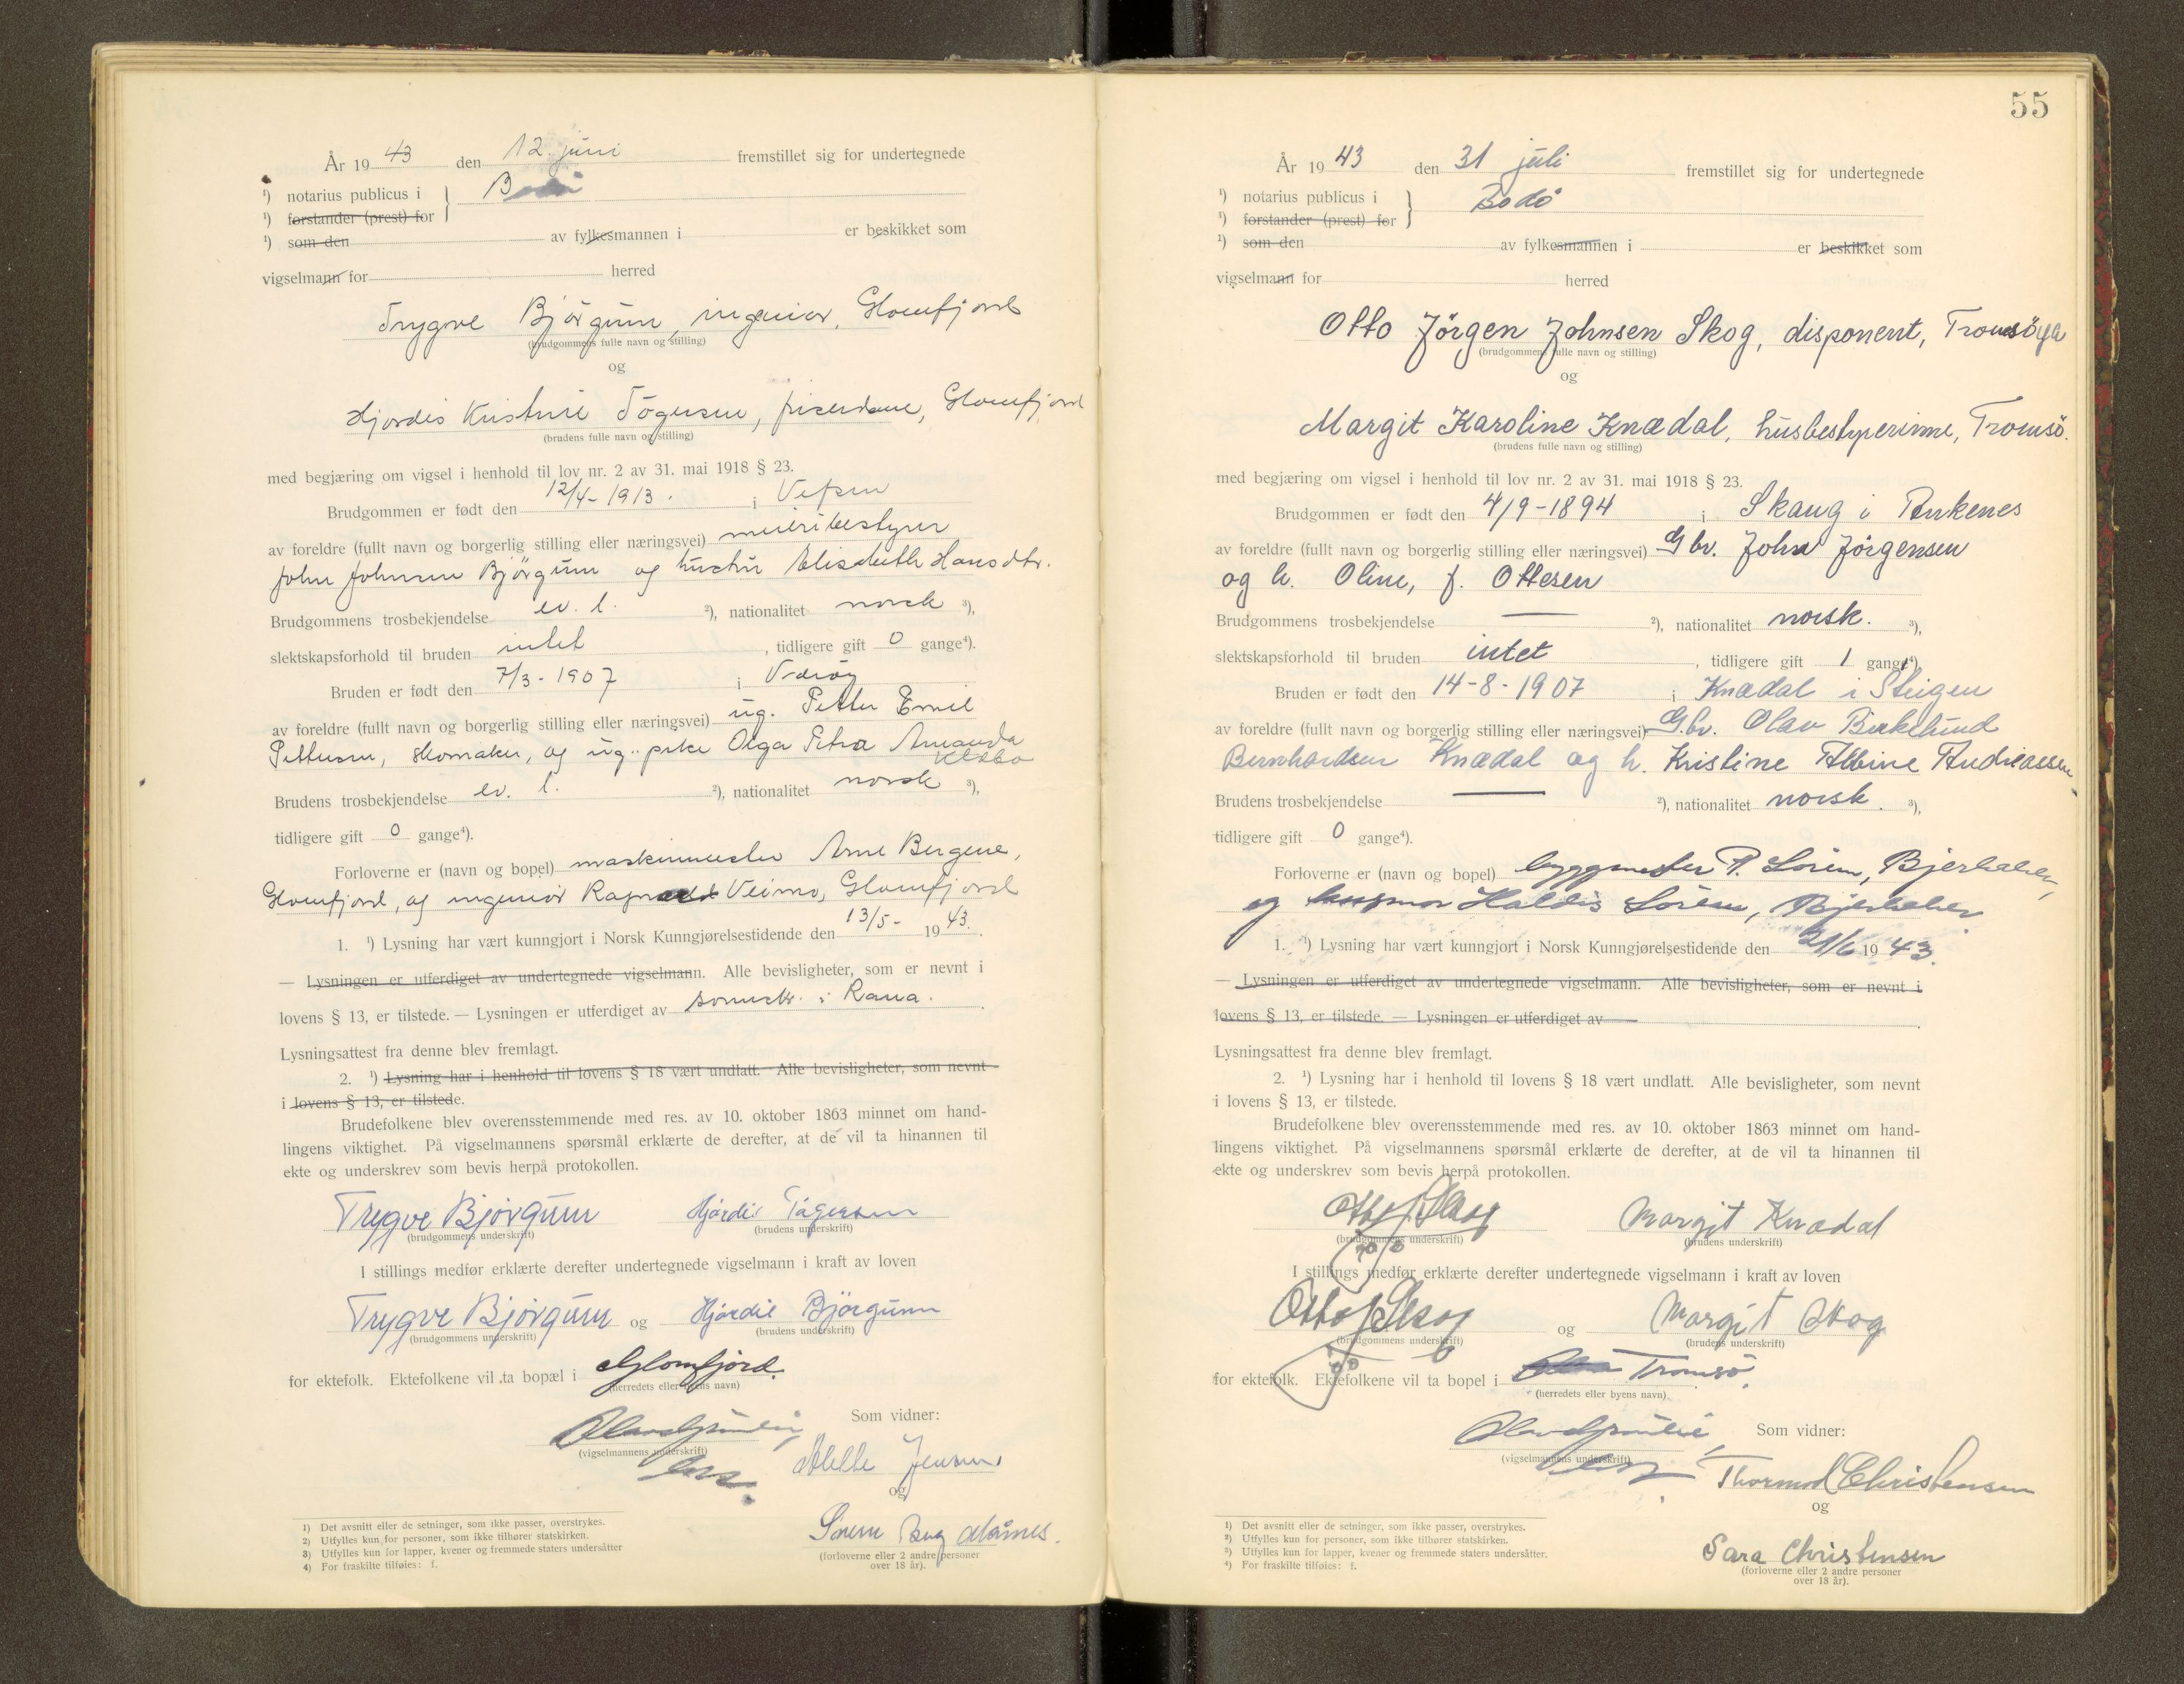 År 19 43 den 12. juni fremstillet sig for undertegnede
¹) notarius publicus i Bodø
¹) forstander (prest) for
¹) som den av fylkesmannen i er beskikket som
vigselmann for herred
Trygve Bjørgum, ingeniør, Glomfjord
(brudgommens fulle navn og stilling)
og
Hjørdis Kristine Tøgersen, friserdame, Glomfjord
(brudens fulle navn og stilling)
med begjæring om vigsel i henhold til lov nr. 2 av 31. mai 1918 § 23.
Brudgommen er født den 12/4-1913. i Vefsn
av foreldre (fullt navn og borgerlig stilling eller næringsvei) meieribestyrer
John Johnsen Bjørgum og hustru Elisabeth Hansdtr.
Brudgommens trosbekjendelse ev. l. ²), nationalitet norsk ³),
slektskapsforhold til bruden intet, tidligere gift 0 gange⁴).
Bruden er født den 7/3-1907 i Værøy
av foreldre (fullt navn og borgerlig stilling eller næringsvei) ug. Petter Emil
Pettersen, skomaker, og ug. pike Olga Petra Amanda
Brudens trosbekjendelse ev. l. ²), nationalitet norsk ³),
tidligere gift 0 gange⁴).
Forloverne er (navn og bopel) maskinmester Arne Bergene,
Glomfjord, og ingeniør Veimo, Glomfjord
1. ¹) Lysning har vært kunngjort i Norsk Kunngjørelsestidende den 13/5- 19 43.
— Lysningen er utferdiget av undertegnede vigselmann. Alle bevisligheter, som er nevnt i
lovens § 13, er tilstede. — Lysningen er utferdiget av sorenskr. i Rana.
Lysningsattest fra denne blev fremlagt.
2. ¹) Lysning har i henhold til lovens § 18 vært undlatt. Alle bevisligheter, som nevnt
i lovens § 13, er tilstede.
Brudefolkene blev overensstemmende med res. av 10. oktober 1863 minnet om hand-
lingens viktighet. På vigselmannens spørsmål erklærte de derefter, at de vil ta hinannen til
ekte og underskrev som bevis herpå protokollen.
Trygve Bjørgum Hjørdis Tøgersen
(brudgommens underskrift) (brudens underskrift)
I stillings medfør erklærte derefter undertegnede vigselmann i kraft av loven
Trygve Bjørgum og Hjørdis Bjørgum
(brudgommens underskrift) (brudens underskrift)
for ektefolk. Ektefolkene vil ta bopæl i Glomfjord.
(herredets eller byens navn)
Som vidner:
(vigselmannens underskrift)
Jensen
og
(forloverne eller 2 andre personer
over 18 år).
1) Det avsnitt eller de setninger, som ikke passer, overstrykes.
2) Utfylles kun for personer, som ikke tilhører statskirken.
3) Utfylles kun for lapper, kvener og fremmede staters undersåtter
4) For fraskilte tilføies: f.
55
År 19 43 den 31 juli fremstillet sig for undertegnede
¹) notarius publicus i Bodö
¹) forstander (prest) for
¹) som den av fylkesmannen i er beskikket som
vigselmann for herred
Otto Jörgen Johnsen Skog, disponent, Tromsö
(brudgommens fulle navn og stilling)
og
Margit Karoline Knædal, husbestyrerinne, Tromsö.
(brudens fulle navn og stilling)
med begjæring om vigsel i henhold til lov nr. 2 av 31. mai 1918 § 23.
Brudgommen er født den 4/9-1894 i Skaug i Ankenes
av foreldre (fullt navn og borgerlig stilling eller næringsvei) Gbr. John Jörgensen
og h. Oline, f. Ottesen
Brudgommens trosbekjendelse — ²), nationalitet norsk. ³),
slektskapsforhold til bruden intet, tidligere gift 1 gang⁴).
Bruden er født den 14-8-1907 i Knædal i Steigen
av foreldre (fullt navn og borgerlig stilling eller næringsvei) Gbr. Olav Birkelund
Bernhardsen Knædal og h. Kristine Albine Andreassen.
Brudens trosbekjendelse — ²), nationalitet norsk. ³),
tidligere gift 0 gange⁴).
Forloverne er (navn og bopel) byggmester P. Sörem,
og Haldis Sörem,
1. ¹) Lysning har vært kunngjort i Norsk Kunngjørelsestidende den 21/6 19 43.
— Lysningen er utferdiget av undertegnede vigselmann. Alle bevisligheter, som er nevnt i
lovens § 13, er tilstede. — Lysningen er utferdiget av
Lysningsattest fra denne blev fremlagt.
2. ¹) Lysning har i henhold til lovens § 18 vært undlatt. Alle bevisligheter, som nevnt
i lovens § 13, er tilstede.
Brudefolkene blev overensstemmende med res. av 10. oktober 1863 minnet om hand-
lingens viktighet. På vigselmannens spørsmål erklærte de derefter, at de vil ta hinannen til
ekte og underskrev som bevis herpå protokollen.
Otto J Skog Margit Knædal
(brudgommens underskrift) (brudens underskrift)
I stillings medfør erklærte derefter undertegnede vigselmann i kraft av loven
Otto J Skog og Margit Skog
(brudgommens underskrift) (brudens underskrift)
for ektefolk. Ektefolkene vil ta bopel i Tromsö.
(herredets eller byens navn).
Som vidner:
(vigselmannens underskrift)
Thormod Christensen
og
Sara Christensen
(forloverne eller 2 andre personer
over 18 år).
¹) Det avsnitt eller de setninger, som ikke passer, overstrykes.
²) Utfylles kun for personer, som ikke tilhører statskirken.
³) Utfylles kun for lapper, kvener og fremmede staters undersåtter.
⁴) For fraskilte tilføies: f.